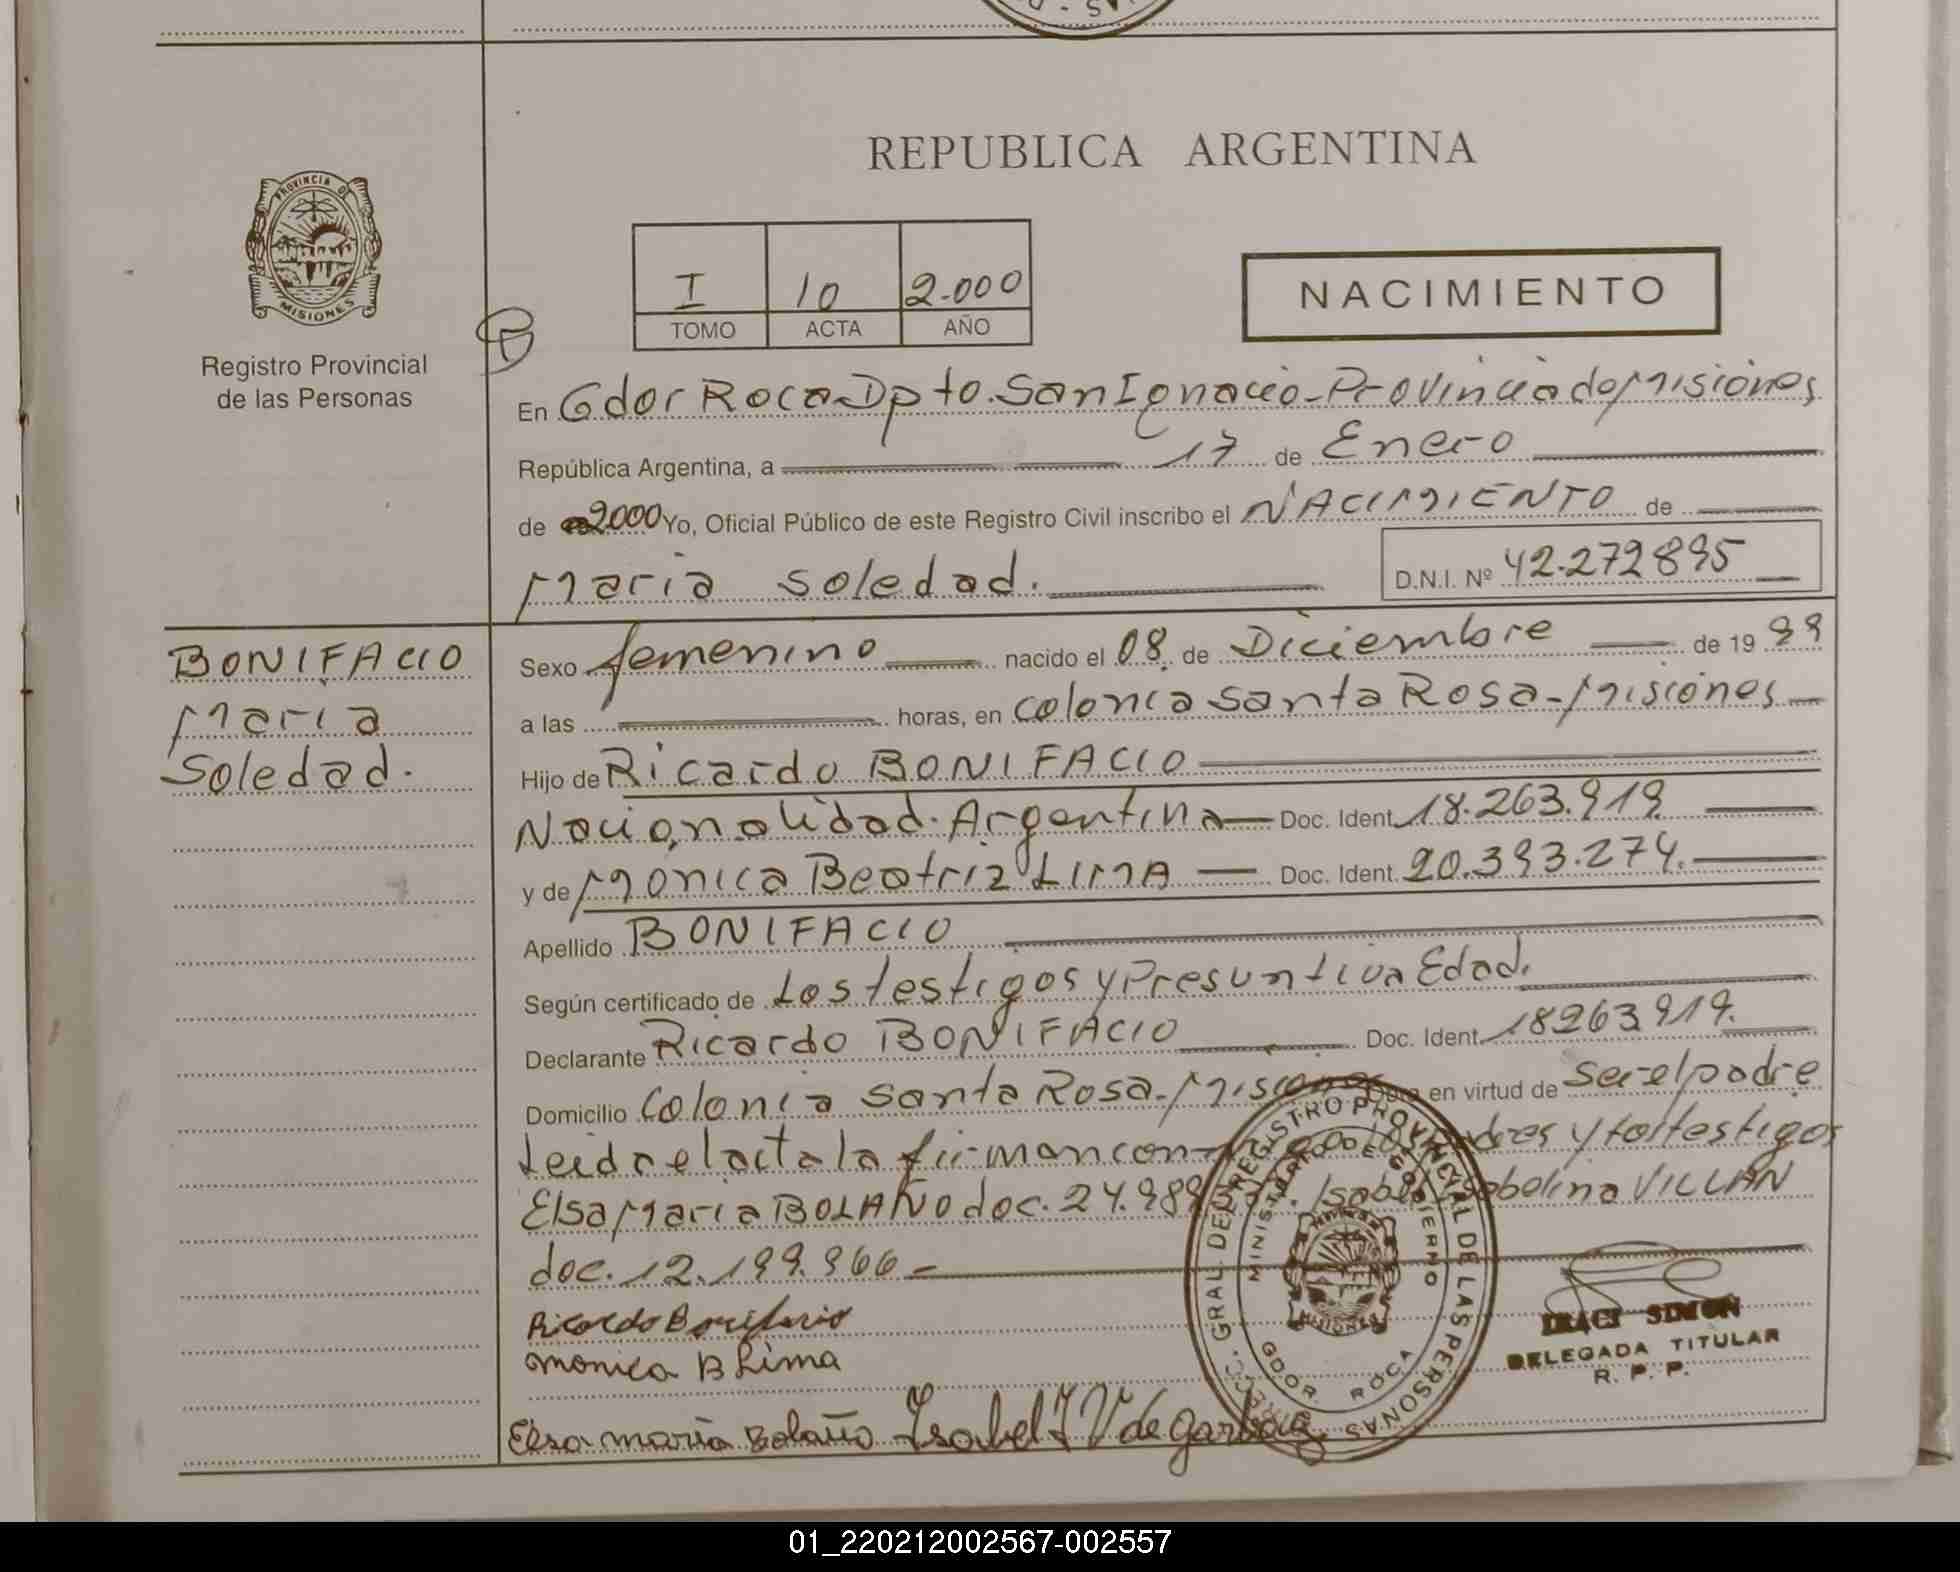 REPUBLICA ARGENTINA
PROVINCIA DE
MISIONES
Registro Provincial
de las Personas
I 10 2.000
TOMO ACTA AÑO
NACIMIENTO
En Gdor Roca Dpto. San Ignacio - Provincia de Misiones
República Argentina, a 17 de Enero
de 2000 Yo, Oficial Público de este Registro Civil inscribo el NACIMIENTO de
Maria Soledad. D.N.I. Nº 42.272895
BONIFACIO
Maria
Soledad.
Sexo femenino nacido el 08 de Diciembre de 19 99
a las horas, en Colonia Santa Rosa - Misiones
Hijo de Ricardo BONIFACIO
Nacionalidad Argentina Doc. Ident. 18.263.919.
y de Monica Beatriz LIMA Doc. Ident. 20.393.274.
Apellido BONIFACIO
Según certificado de Los testigos y Presuntiva Edad.
Declarante Ricardo BONIFACIO Doc. Ident. 18263919.
Domicilio Colonia Santa Rosa - Misiones en virtud de ser el padre
Leida el acta la firman con los padres y los testigos
Elsa Maria BOLAÑO doc. 24.989 Isabel Isabelina VILLAN
doc. 12.199.966 -
Ricardo Bonifacio
Monica B Lima
Elsa María Bolaño Isabel I V de
REGISTRO PROVINCIAL DE LAS PERSONAS
MINISTERIO DE GOBIERNO
MISIONES
GDOR. ROCA
IRACI SIMON
DELEGADA TITULAR
R. P. P.
01_220212002567-002557